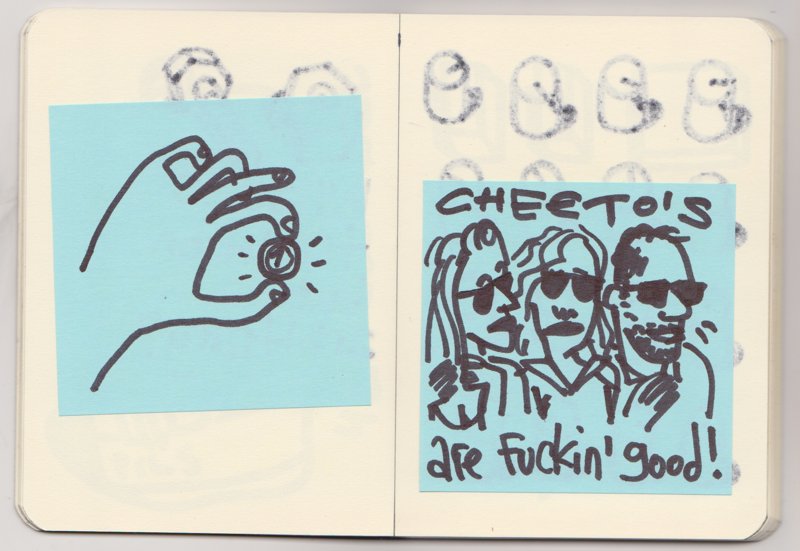 CHEETO'S
are fuckin' good!